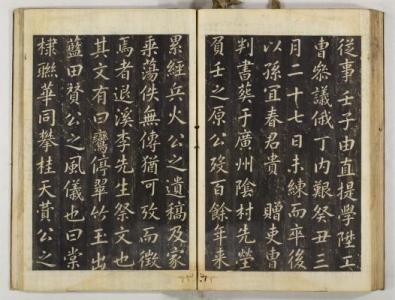 從事壬子由直提學陞工
曹叅議俄丁內艱癸丑三
月二十七日未練而卒後
以孫宜春君貴 贈吏曹
判書葬于廣州陰村先塋
負壬之原公歿百餘年來
累經兵火公之遺稿及家
乘蕩佚無傳猶可攷而徵
焉者退溪李先生祭文也
其文有曰鸞停翠竹玉出
藍田贊公之風儀也曰棠
棣聯華同攀桂天贊公之